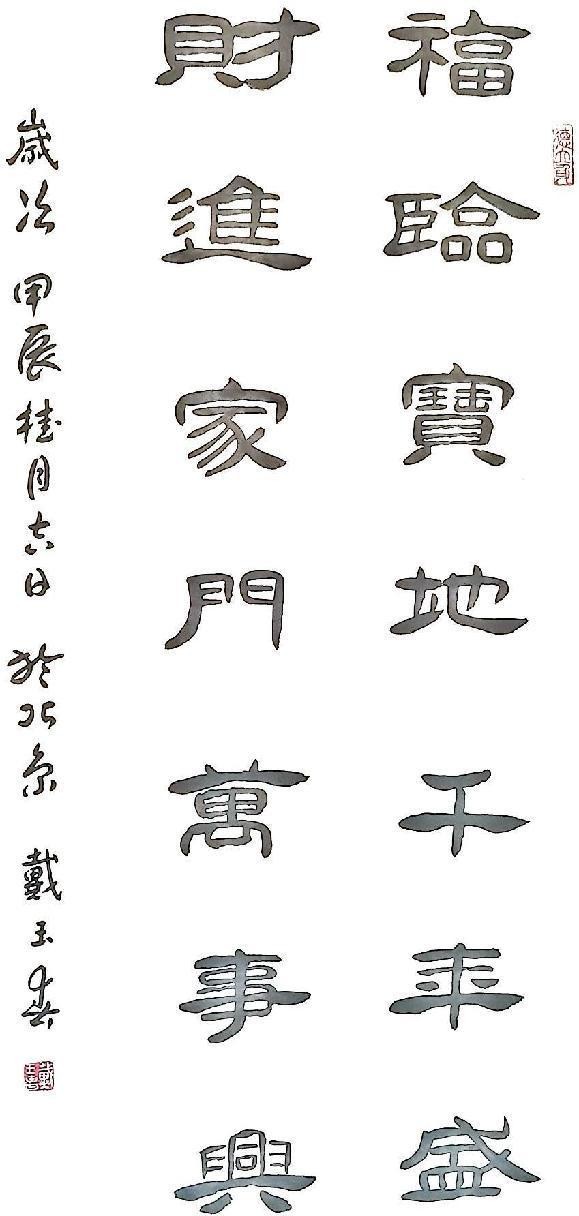 福臨寶地千年盛
財進家門萬事興
歲次甲辰桂月六日於北京戴玉